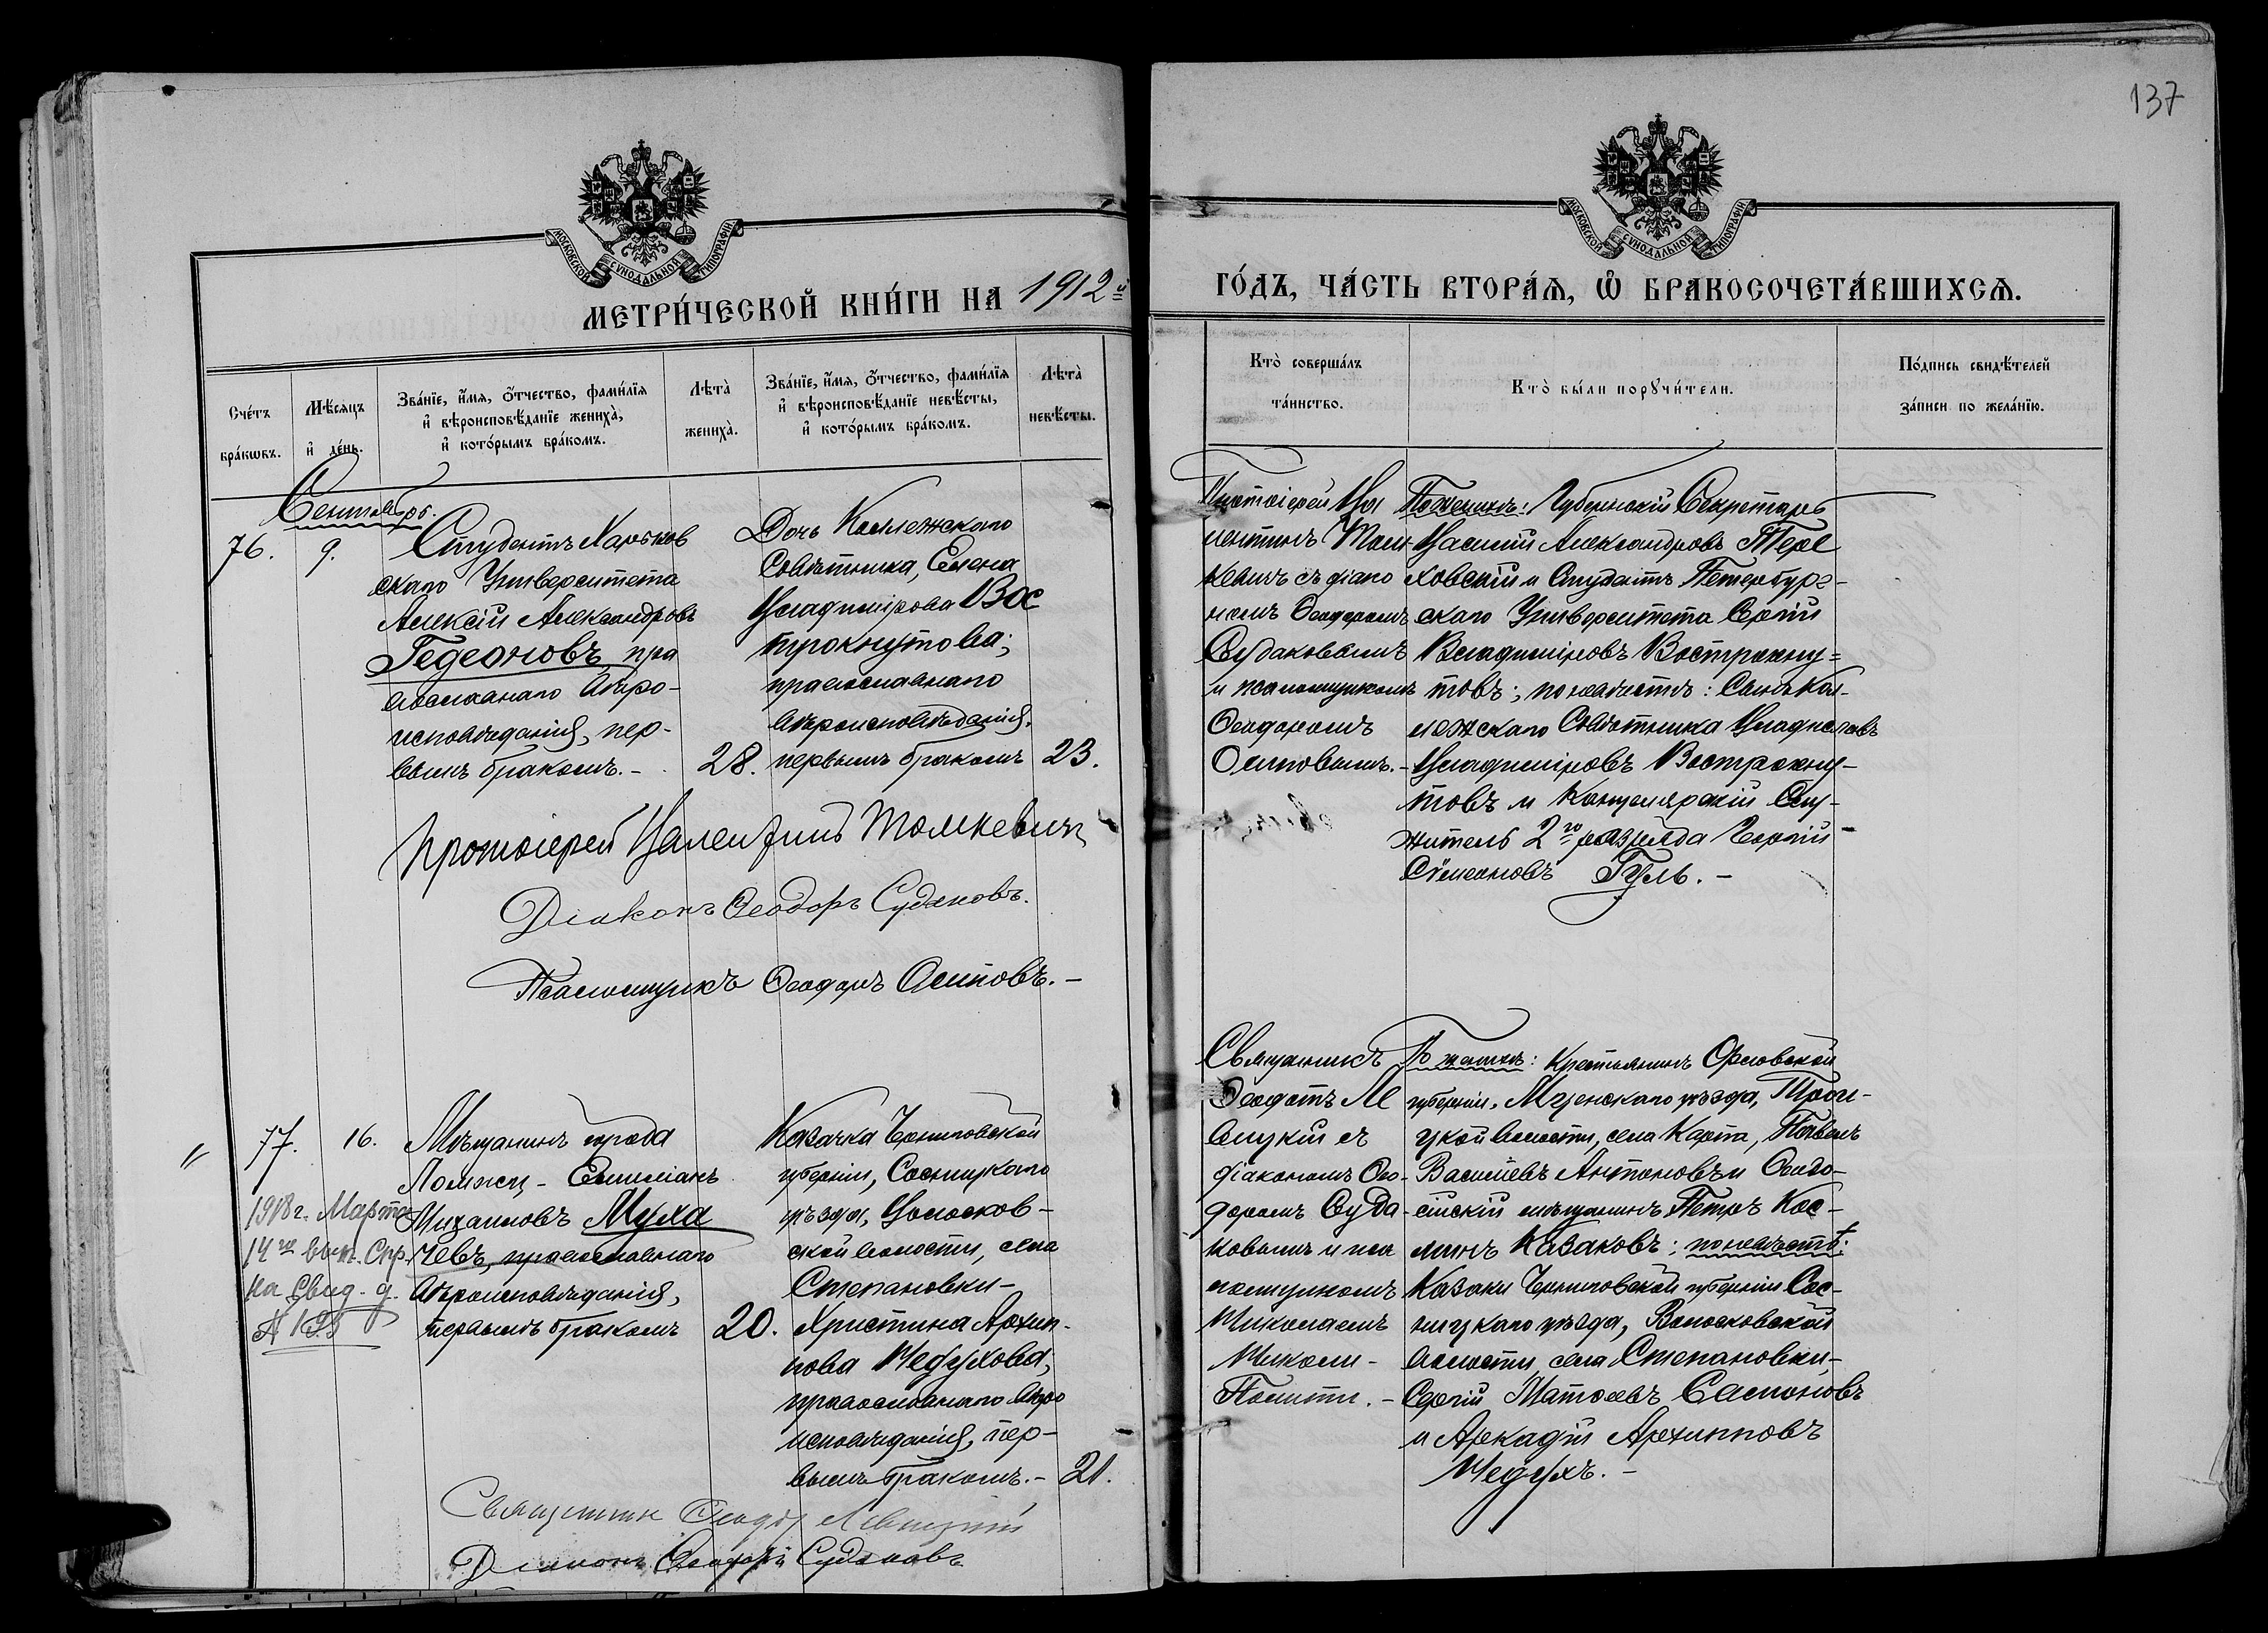 137
МОСКОВСКОЙ СѴНОДАЛЬНОЙ ТИПОГРАФІИ
МОСКОВСКОЙ СѴНОДАЛЬНОЙ ТИПОГРАФІИ
МЕТРИ́ЧЕСКОЙ КНИ́ГИ НА 1912й
ГО́ДЪ, ЧА́СТЬ ВТОРА́Я, Ѡ҆ БРАКОСОЧЕТА́ВШИХСЯ.
Сче́тъ
бра́кѡвъ.
Мѣ́сяцъ
и҆ де́нь.
Зва́нїе, и҆́мя, ѻ҆́тчество, фами́лїя
и҆ вѣроисповѣ́данїе жениха̀,
и҆ кото́рымъ бра́комъ.
Лѣта̀
жениха̀.
Зва́нїе, и҆́мя, ѻ҆́тчество, фами́лїя
и҆ вѣроисповѣ́данїе невѣ́сты,
и҆ кото́рымъ бра́комъ.
Лѣта̀
невѣ́сты.
Кто̀ соверша́лъ
та́инство.
Кто̀ бы́ли порꙋчи́тели.
По́дпись свидѣ́телей
за́писи по жела́нїю.
Сентябрь.
76.
9.
Студентъ Харьков
скаго Университета
Алексій Александровъ
Гедеоновъ, пра
вославнаго вѣро-
исповѣданія, пер-
вымъ бракомъ. -
28.
Дочь Коллежскаго
Совѣтника, Елена
Владимірова Вос
трокнутова;
православнаго
вѣроисповѣданія,
первымъ бракомъ
23.
Протоіерей Ва
лентинъ Том-
кевичъ съ діако
номъ Ѳеодоромъ
Судаковымъ
и псаломщикомъ
Ѳеодоромъ
Осиповымъ. -
По женихѣ: Губернскій Секретарь
Василій Александровъ Тере
ховскій и Студентъ Петербург-
скаго Университета Сергій
Владиміровъ Вострокну=
товъ; по невѣстѣ: Сынъ Кол-
лежскаго Совѣтника Владиславъ
Владиміровъ Вострокну-
товъ и Канцелярскій Слу-
житель 2го разряда Георгій
Сѵмеоновъ Гуль. -
Протоіерей Валентинъ Томкевичъ
Діаконъ Ѳеодоръ Судаковъ.
Псаломщикъ Ѳеодоръ Осиповъ. -
77.
16.
1918г. Марта
14го выд. Спр.
на Свид. д.
Мѣщанинъ города
Ломжи - Емиліанъ
Михаиловъ Муха
чевъ, православнаго
вѣроисповѣданія,
первымъ бракомъ
20.
Казачка Черниговской
губерніи, Сосницкаго
уѣзда, Волосков-
ской волости, села
Степановки -
Христина Архип-
пова Недухова,
православнаго вѣро
исповѣданія, пер-
вымъ бракомъ. -
21.
Священникъ
Ѳеодотъ Ле
вицкій съ
діакономъ Ѳео-
доромъ Суда-
ковымъ и пса
ломщикомъ
Николаемъ
По женихѣ: Крестьянинъ Орловской
губерніи, Мценскаго уѣзда, Трои-
цкой волости, села Карпа, Павелъ
Васильевъ Антоновъ и Ѳеодо-
сійскій мѣщанинъ Петръ Кос-
минъ Казаковъ; по невѣстѣ:
Казаки Черниговской губерніи Сос-
ницкаго уѣзда, Волосковской
волости, села Степановки, -
Сергій Матѳеевъ Самоновъ
и Аркадій Архипповъ
Недухъ. -
Священникъ Ѳеодотъ Левицкій
Діаконъ Ѳеодоръ Судаковъ